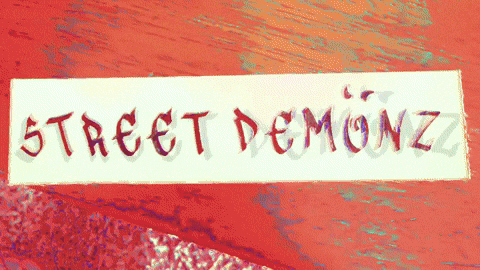 STREET DEMÖNZ